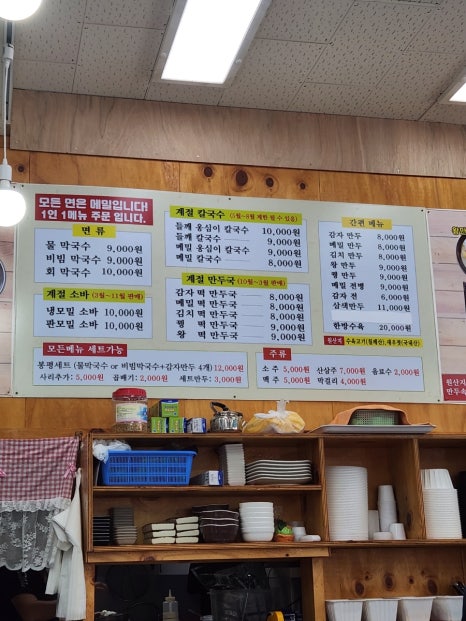 모든 면은 메밀입니다!
1인 1메뉴 주문 입니다.
면 류
물 막국수 9,000원
비빔 막국수 9,000원
회 막국수 10,000원
계절 소바 (3월~11월 판매)
냉모밀 소바 10,000원
판모밀 소바 10,000원
계절 칼국수
들깨 옹심이 칼국수 10,000원
들깨 칼국수 9,000원
메밀 옹심이 칼국수 9,000원
메밀 칼국수 8,000원
계절 만두국 (10월~3월 판매)
감자 떡 만두국 8,000원
메밀 떡 만두국 8,000원
김치 떡 만두국 8,000원
평 떡 만두국 9,000원
왕 떡 만두국 9,000원
간편 메뉴
감자 만두 8,000원
메밀 만두 8,000원
김치 만두 8,000원
왕 만두 9,000원
평 만두 9,000원
메밀 전병 9,000원
감자 전 6,000원
삼색만두 11,000원
한방수육 20,000원
모든메뉴 세트가능
봉평세트 (물막국수 or 비빔막국수+감자만두 4개) 12,000원
사리추가: 5,000원 곱배기: 2,000원 세트만두: 3,000원
주류
소 주 5,000원 산삼주 7,000원 음료수 2,000원
맥 주 5,000원 막걸리 4,000원
원산지